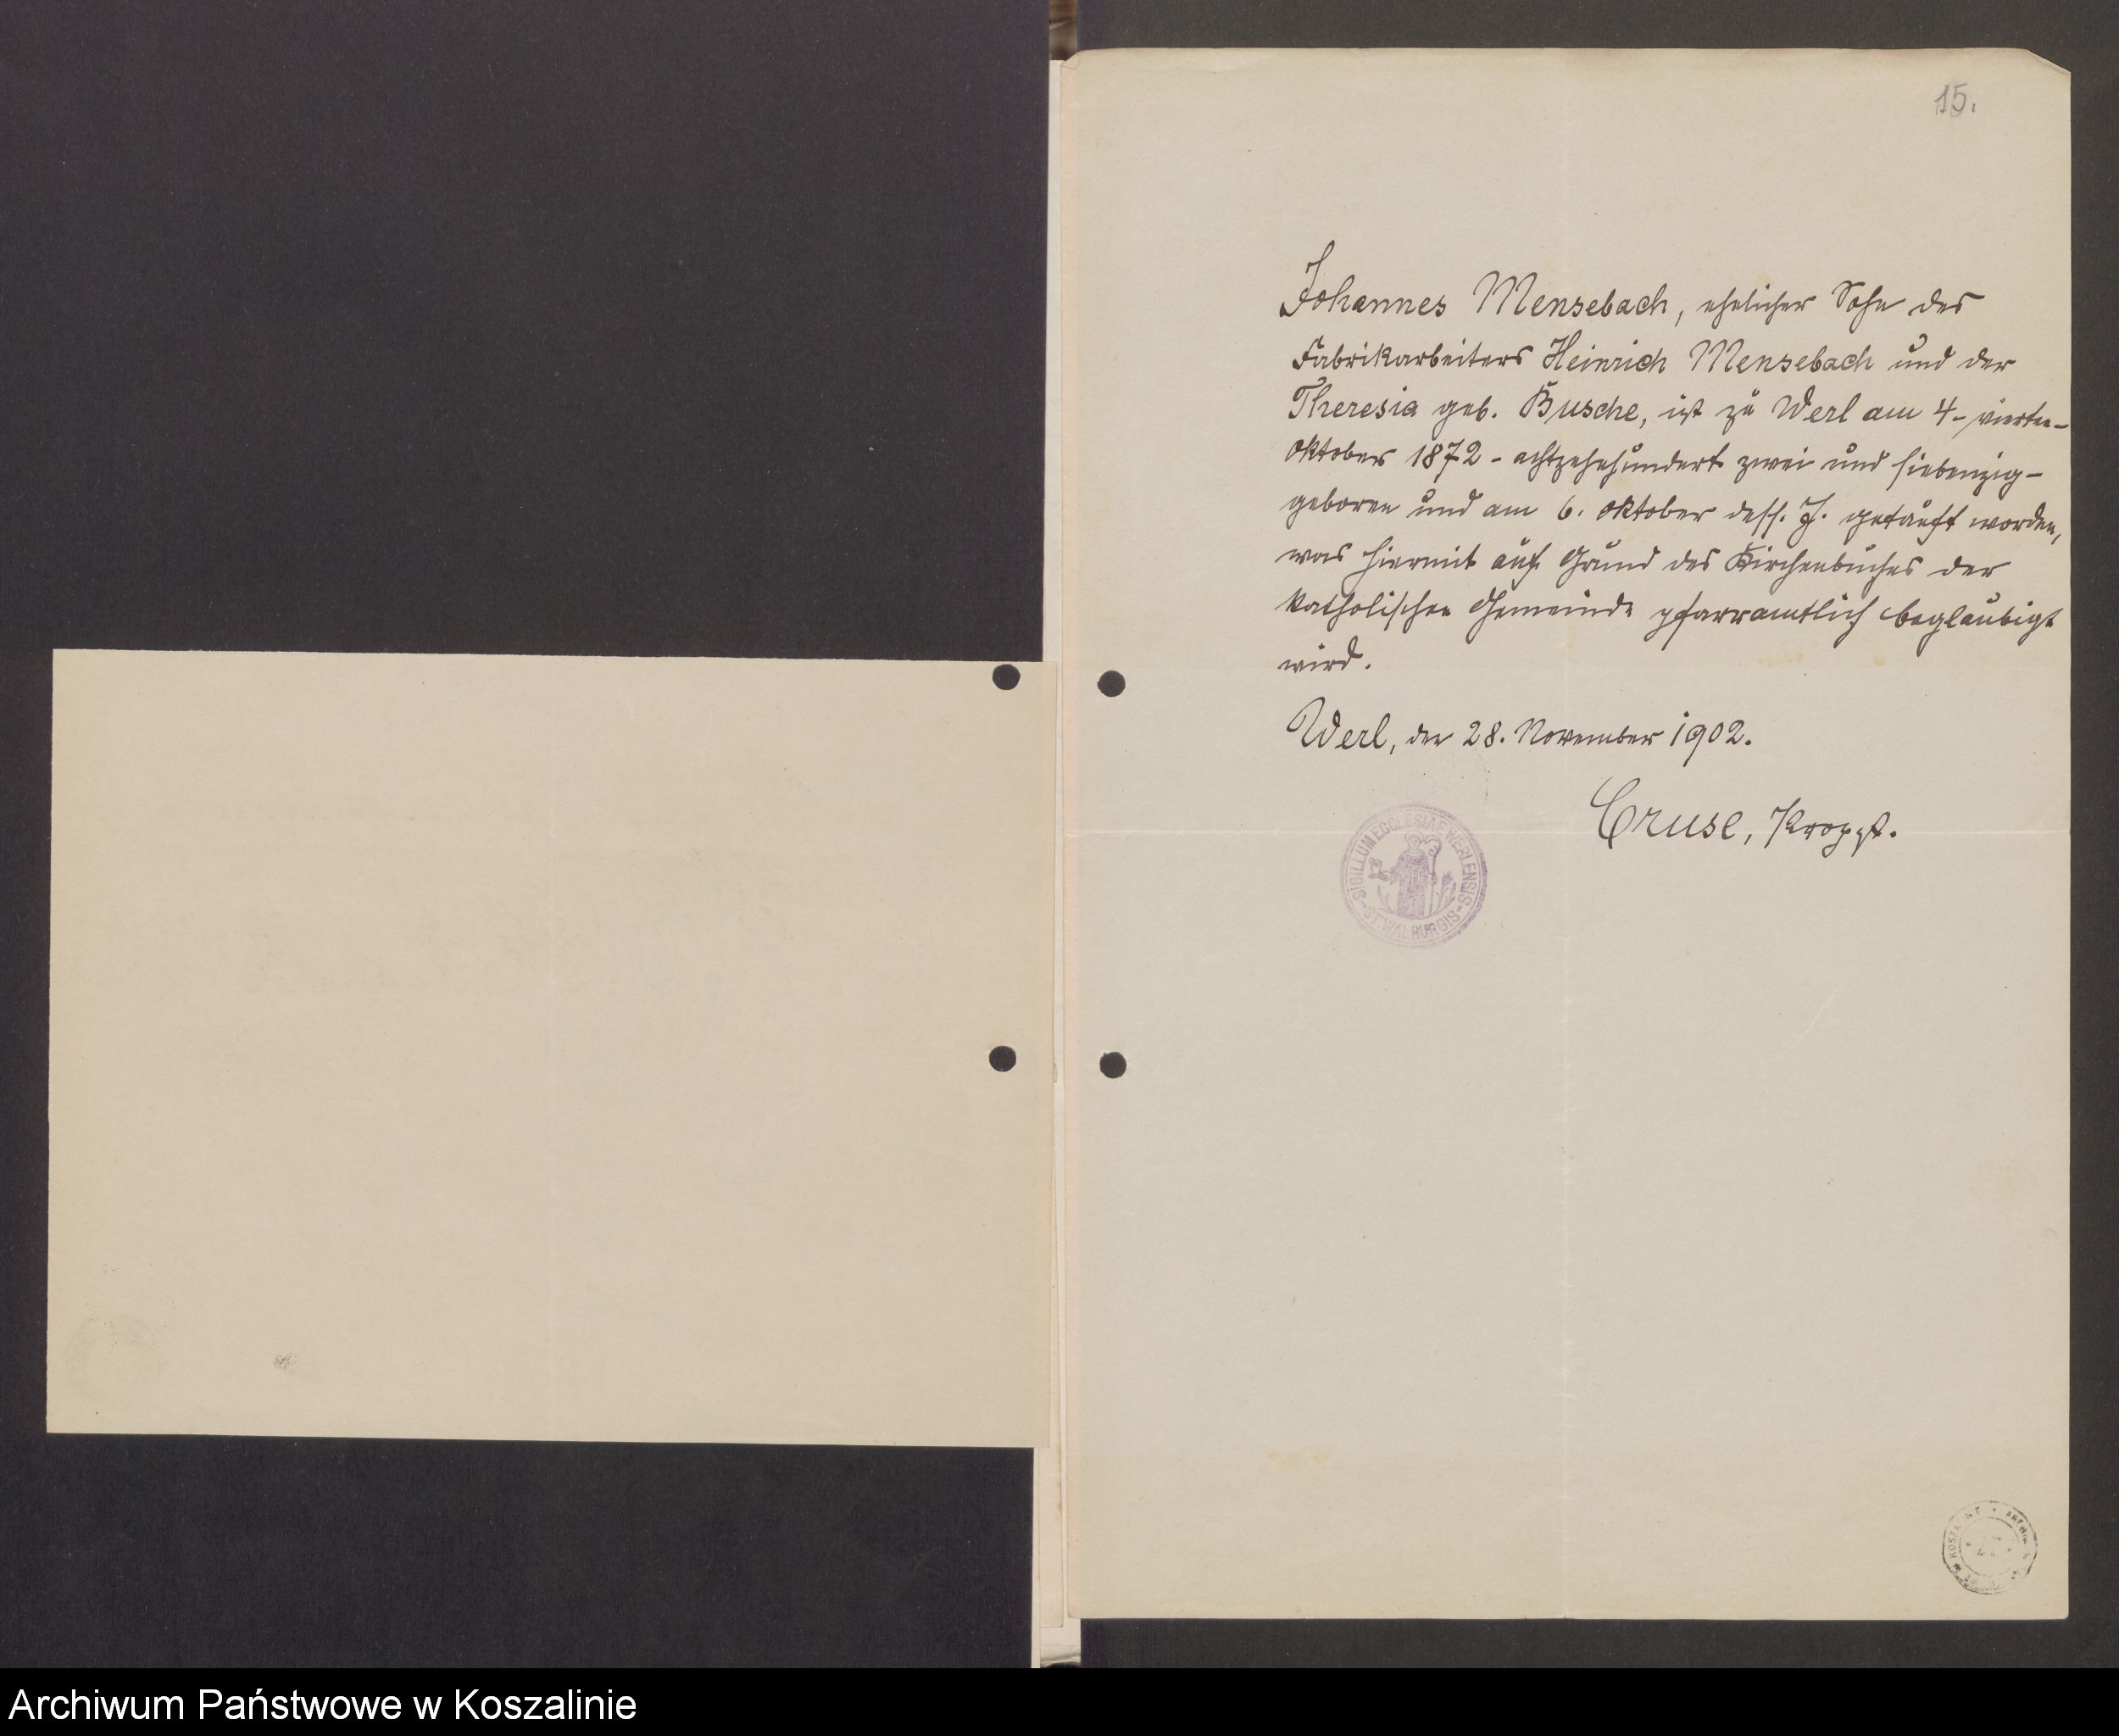 15.
Johannes Mensebach, ehelicher Sohn des
Fabrikarbeiters Heinrich Mensebach und der
Theresia geb. Busche, ist zu Werl am 4 - vierten -
Oktober 1872 - achtzehnhundert zwei und siebenzig -
geboren und am 6. Oktober dess. J. getauft worden,
was hiermit auf Grund des Kirchenbuches der
katholischen Gemeinde pfarramtlich beglaubigt
wird.
Werl, den 28. November 1902.
Cruse, Propst.
SIGILLUM ECCLESIAE WERLENSIS
ST. WALBURGIS
Archiwum Państwowe w Koszalinie